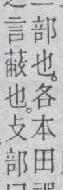 部也。各本田
言蔽也。攴部